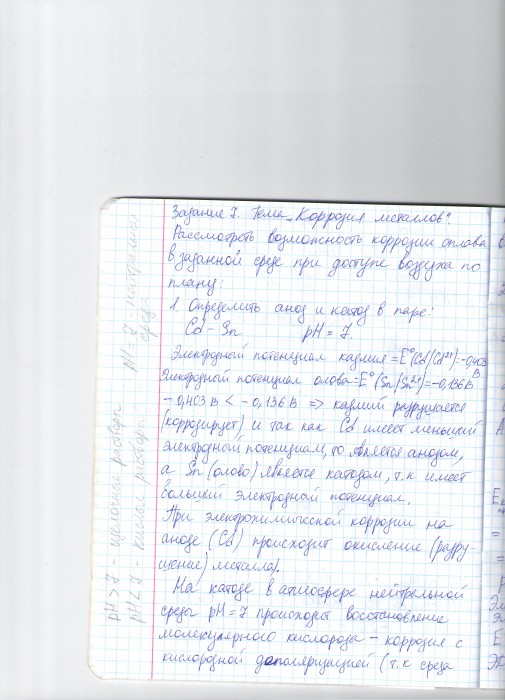 Задание 7. Тема „Коррозия металлов"
Рассмотреть возможность коррозии сплава
в заданной среде при доступе воздуха по
плану:
1. Определить анод и катод в паре:
Cd - Sn pH = 7.
Электродный потенциал кадмия = E°(Cd/Cd²⁺)=-0,403
В
Электродный потенциал олова = E°(Sn/Sn²⁺)=-0,136В
-0,403 В < -0,136 В => кадмий разрушается
(корродирует) и так как Cd имеет меньший
электродный потенциал, то является анодом,
а Sn (олово) является катодом, т.к имеет
больший электродный потенциал.
При электрохимической коррозии на
аноде (Cd) происходит окисление (разру-
шение) металла.
На катоде в атмосфере нейтральной
среды pH=7 происходит восстановление
молекулярного кислорода - коррозия с
кислородной деполяризацией (т.к среда
pH = 7 - нейтральная
среда
pH > 7 - щелочные растворы
pH < 7 - кислые растворы